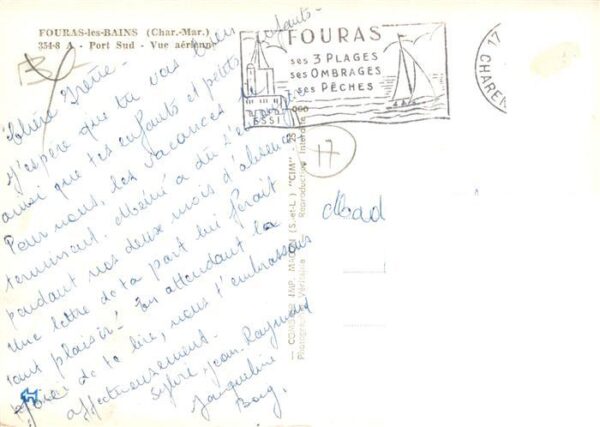 FOURAS-les-BAINS (Char.-Mar.)
354-8 A - Port Sud - Vue aérienne
FOURAS
SES 3 PLAGES
SES OMBRAGES
SES PÊCHES
17
CHAREN
17
Chère
J'espère que tu vas bien
ainsi que tes enfants et petits enfants.
Pour nous, les vacances se
terminent. Mémé a dû s'ennuyer
pendant nos deux mois d'absence
une lettre de ta part lui ferait
tant plaisir! En attendant la
joie de te lire, nous t'embrassons
affectueusement.
Sylvie, Jean-Raymond
Jacqueline
Mad
IMP. MACON (S.-et-L.) "CIM"
Reproduction Interdite